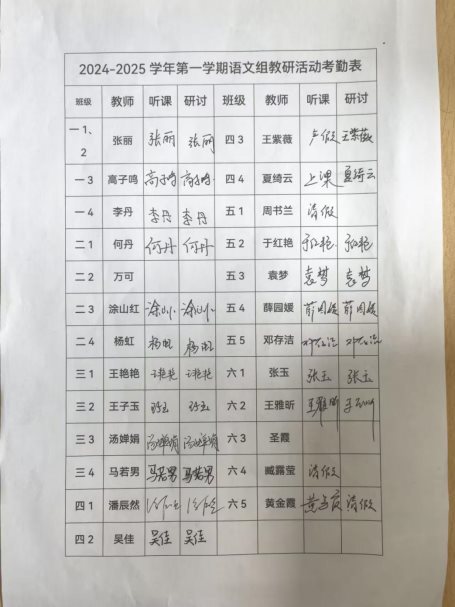 2024-2025 学年第一学期语文组教研活动考勤表
班级 教师 听课 研讨 班级 教师 听课 研讨
一 1、2 张丽 张丽 张丽 四 3 王紫薇 产假 王紫薇
一 3 高子鸣 高子鸣 高子鸣 四 4 夏绮云 上课 夏绮云
一 4 李丹 李丹 李丹 五 1 周书兰 请假
二 1 何丹 何丹 何丹 五 2 于红艳 于红艳 于红艳
二 2 万可 五 3 袁梦 袁梦 袁梦
二 3 涂山红 涂山红 涂山红 五 4 薛园媛 薛园媛 薛园媛
二 4 杨虹 杨虹 杨虹 五 5 邓存洁 邓存洁 邓存洁
三 1 王艳艳 王艳艳 王艳艳 六 1 张玉 张玉 张玉
三 2 王子玉 六 2 王雅昕 王雅昕
三 3 汤婵娟 汤婵娟 汤婵娟 六 3 圣霞
三 4 马若男 马若男 马若男 六 4 臧露莹 请假
四 1 潘辰然 六 5 黄金霞 黄金霞 请假
四 2 吴佳 吴佳 吴佳